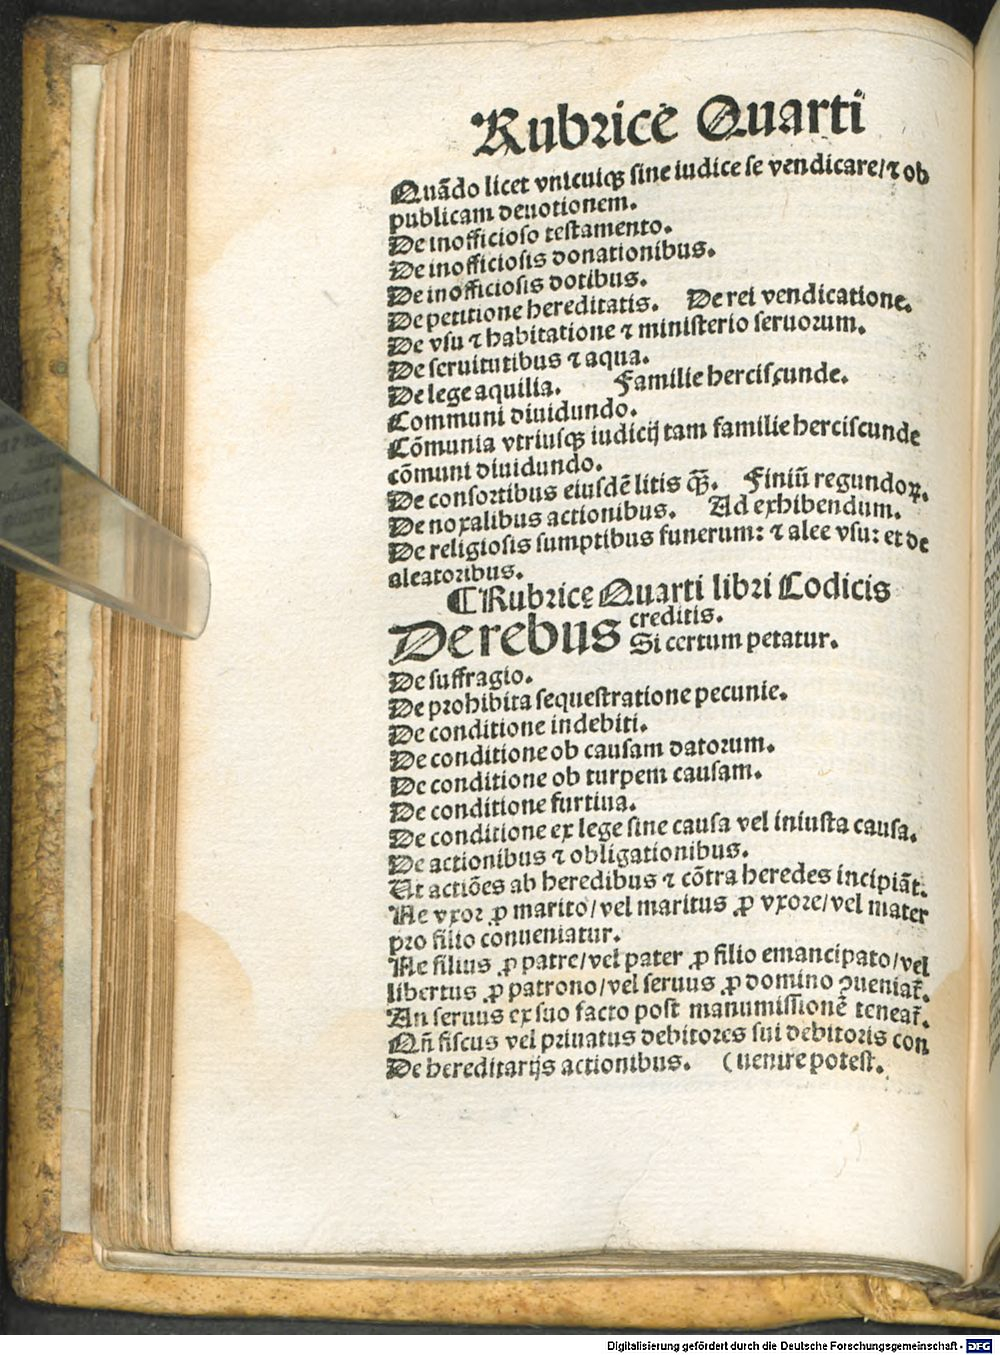 Rubrice Quarti
Quãdo licet vnicuiqꝫ sine iudice se vendicare/⁊ ob
publicam deuotionem.
De inofficioso testamento.
De inofficiosis donationibus.
De inofficiosis dotibus.
De petitione hereditatis. De rei vendicatione.
De vsu ⁊ habitatione ⁊ ministerio seruorum.
De seruitutibus ⁊ aqua.
De lege aquilia. Familie herciscunde.
Communi diuidundo.
Cõmunia vtriusqꝫ iudicij tam familie herciscunde
cõmuni diuidundo.
De consortibus eiusdẽ litis Finiũ regundoꝝ.
De noxalibus actionibus. Ad exhibendum.
De religiosis sumptibus funerum: ⁊ alee vsu: et de
aleatoribus.
¶ Rubrice Quarti libri Codicis
De rebus creditis.
Si certum petatur.
De suffragio.
De prohibita sequestratione pecunie.
De conditione indebiti.
De conditione ob causam datorum.
De conditione ob turpem causam.
De conditione furtiua.
De conditione ex lege sine causa vel iniusta causa.
De actionibus ⁊ obligationibus.
Ut actiões ab heredibus ⁊ cõtra heredes incipiãt.
Ne vxor ꝓ marito/vel maritus ꝓ vxore/vel mater
pro filio conueniatur.
Ne filius ꝓ patre/vel pater ꝓ filio emancipato/vel
libertus ꝓ patrono/vel seruus ꝓ domino ꝯueniat̃.
An seruus ex suo facto post manumissionẽ teneat̃.
Qñ fiscus vel priuatus debitores sui debitoris con
De hereditarijs actionibus. (uenire potest.
Digitalisierung gefördert durch die Deutsche Forschungsgemeinschaft - DFG